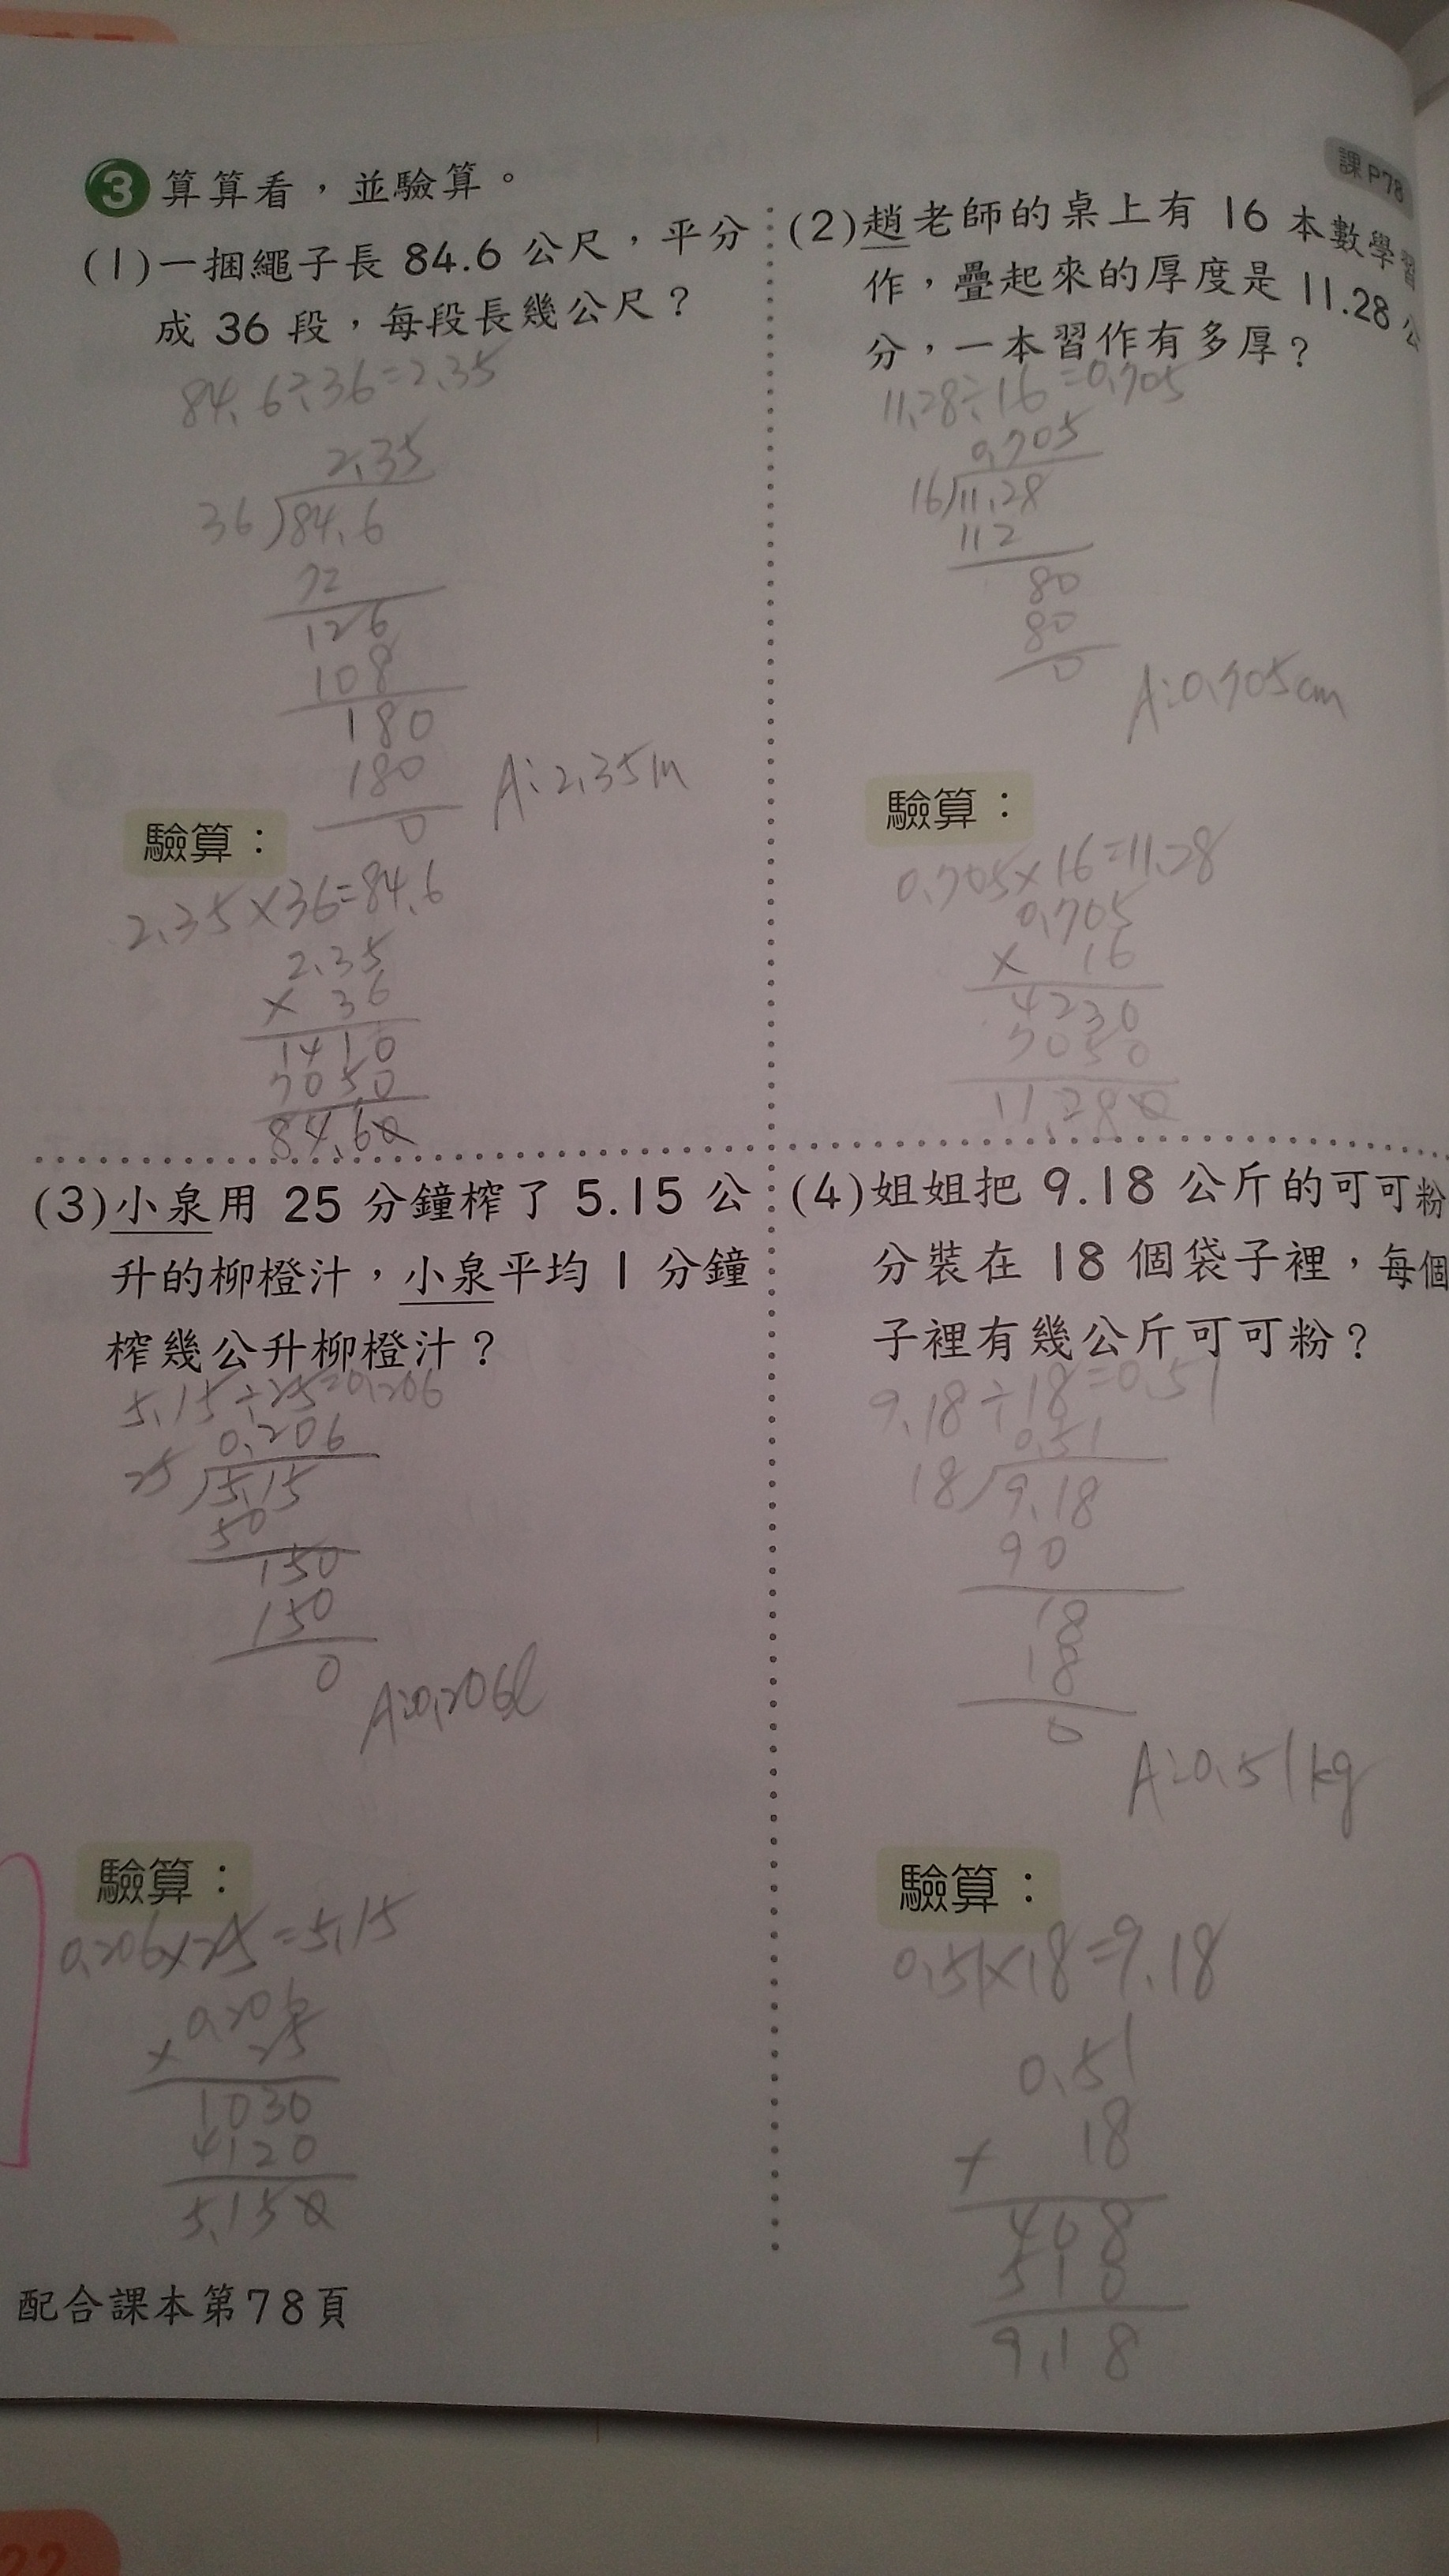 課P78
3 算算看，並驗算。
(1)一捆繩子長 84.6 公尺，平分
成 36 段，每段長幾公尺？
84.6÷36=2.35
2.35
36)84.6
72
126
108
180
180
0
A:2.35m
驗算：
2.35×36=84.6
2.35
× 36
1410
7050
84.60
(2)趙老師的桌上有 16 本數學習
作，疊起來的厚度是 11.28 公
分，一本習作有多厚？
11.28÷16=0.705
0.705
16)11.28
112
80
80
0
A:0.705cm
驗算：
0.705×16=11.28
0.705
× 16
4230
7050
11.280
(3)小泉用 25 分鐘榨了 5.15 公
升的柳橙汁，小泉平均 1 分鐘
榨幾公升柳橙汁？
5.15÷25=0.206
0.206
25)5.15
50
150
150
0
A:0.206ℓ
驗算：
0.206×25=5.15
0.206
× 25
1030
4120
5.150
(4)姐姐把 9.18 公斤的可可粉
分裝在 18 個袋子裡，每個
子裡有幾公斤可可粉？
9.18÷18=0.51
0.51
18)9.18
90
18
18
0
A:0.51kg
驗算：
0.51×18=9.18
0.51
× 18
408
510
9.18
配合課本第78頁
22